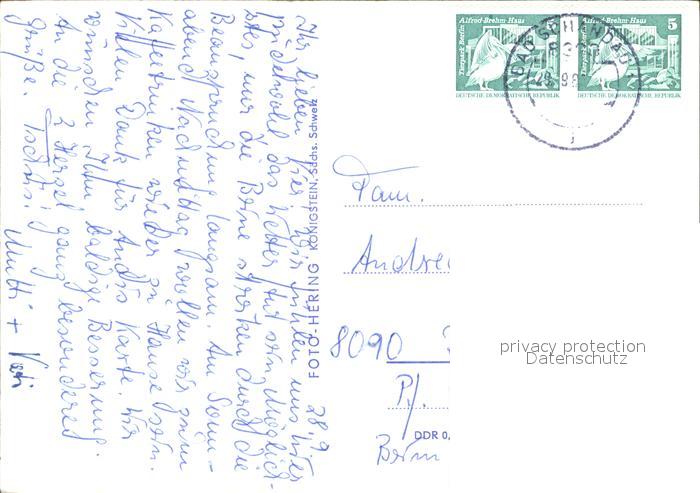 28.9.
Ihr lieben Vier! Wir fühlen uns hier
pudelwohl, das Wetter tut sein Möglich-
stes, nur die Beine streiken durch die
Beanspruchung langsam. Am Sonn-
abend Nachmittag wollen wir zum
Kaffeetrinken wieder zu Hause sein.
Vielen Dank für Andis Karte. Wir
wünschen Ihm baldige Besserung.
An die 2 Herzel ganz besonderes
Grüße. Tschüs.
Mutti + Vati
FOTO-HERING KÖNIGSTEIN, Sächs. Schweiz
Alfred-Brehm-Haus
Tierpark Berlin
DEUTSCHE DEMOKRATISCHE REPUBLIK
Alfred-Brehm-Haus 5
Tierpark Berlin
DEUTSCHE DEMOKRATISCHE REPUBLIK
BAD SCHANDAU
Fam.
Andre
8090
Pf.
DDR 0,
Berlin
privacy protection
Datenschutz